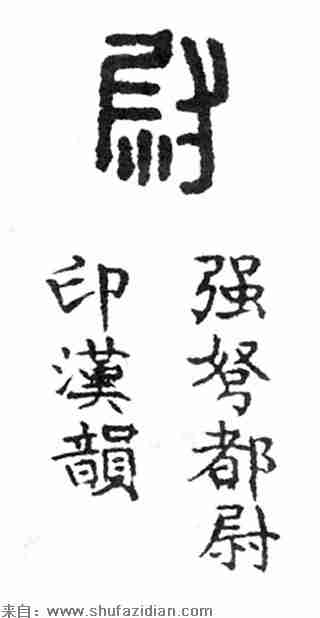 尉
强弩都尉
印漢韻
来自：www.shufazidian.com